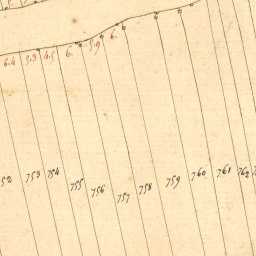 6.4 5.3 4.5 6. 5.9 6.
752 753 754 755 756 757 758 759 760 761 762